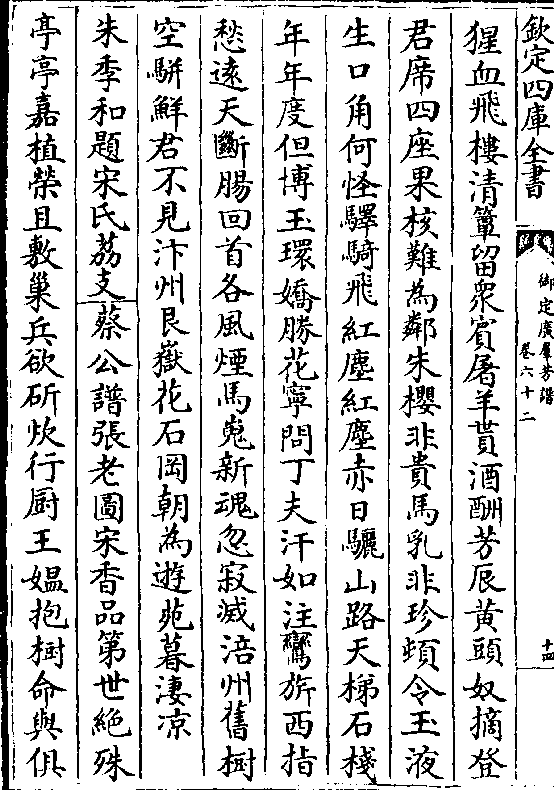 欽定四庫全書
御定廣羣芳譜
卷六十二
十四
猩血飛樓清簟留衆賓屠羊貰酒酬芳辰黄頭奴摘登
君席四座果核難為鄰朱櫻非貴馬乳非珍頓令玉液
生口角何怪驛騎飛紅塵紅塵赤日驪山路天梯石棧
年年度但博玉環嬌勝花寧問丁夫汗如注鸞旂西指
愁遠天斷腸回首各風煙馬嵬新魂忽寂滅涪州舊樹
空駢鮮君不見汴州艮嶽花石岡朝為遊苑暮淒凉
朱季和題宋氏荔支蔡公譜張老圖宋香品第世絶殊
亭亭嘉植榮且敷巢兵欲斫炊行厨王媪抱樹命與俱